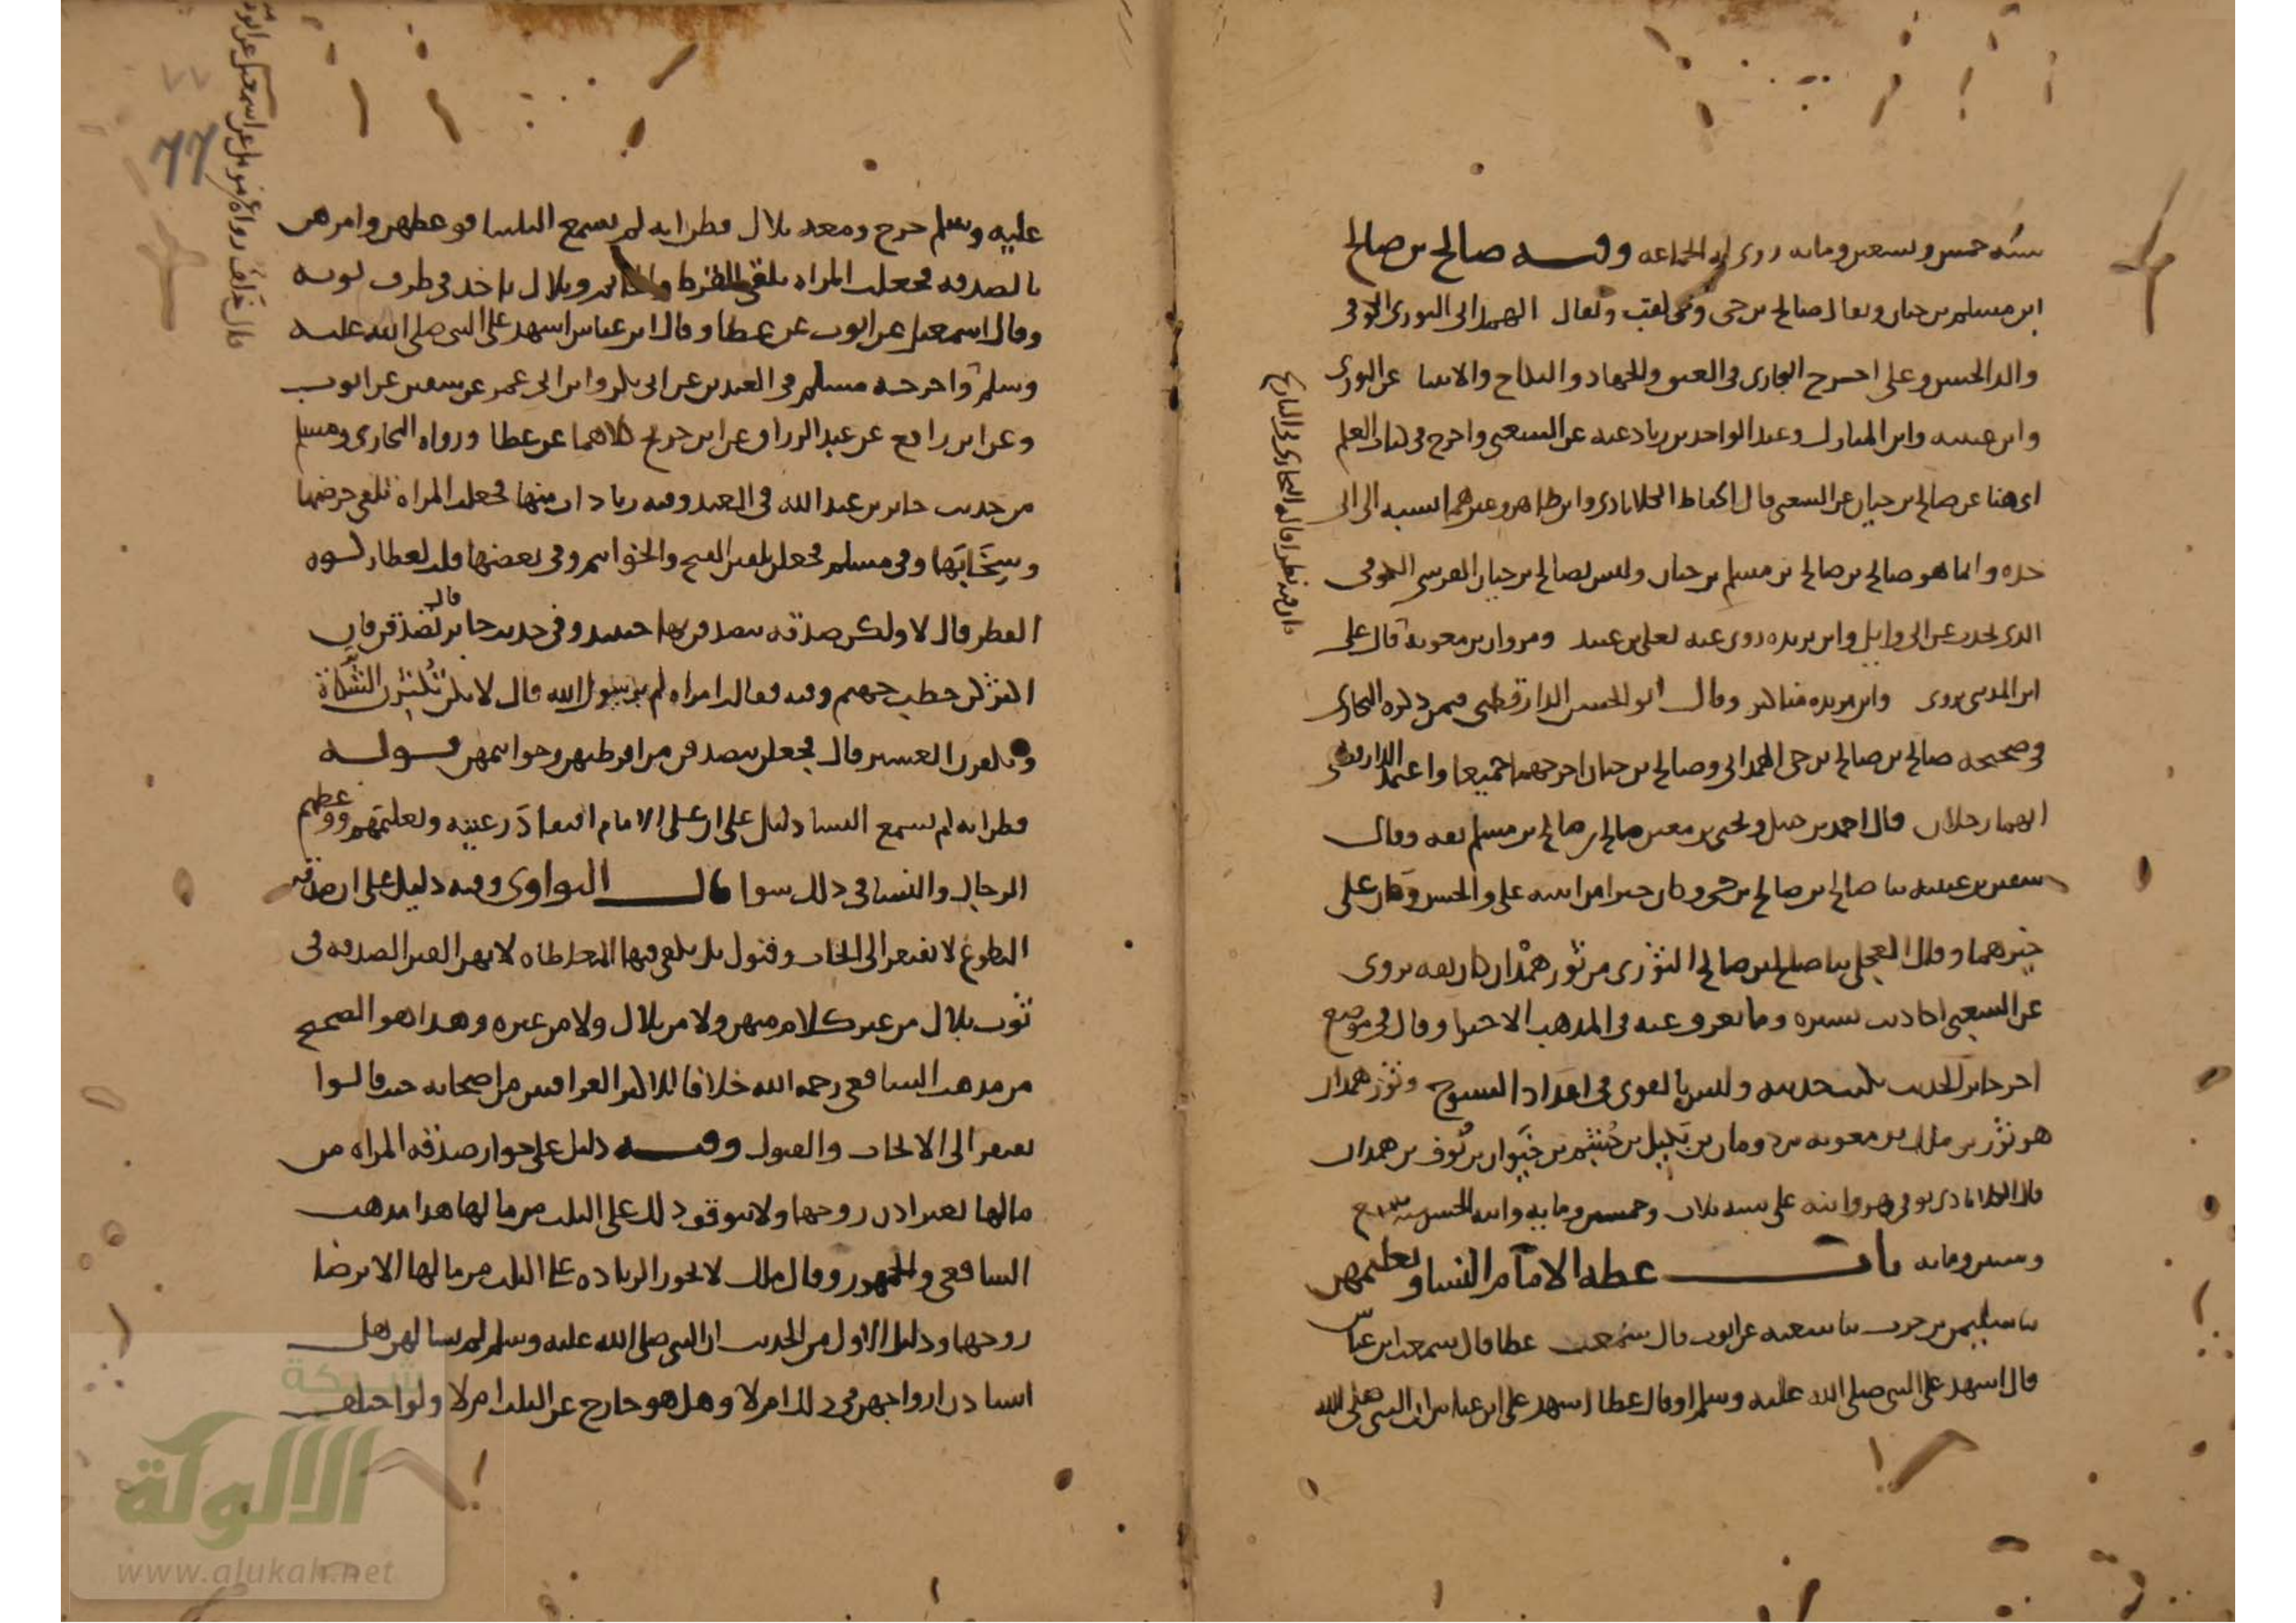 سنه خمس وتسعين ومايه روى له الجماعه وفيه صالح بن صالح
ابن مسلم بن حيان ويقال صالح بن حي وحي لقب ويقال الهمداني الثوري الكوفي
والد الحسن وعلي اخرج البخاري في العتق والجهاد والنكاح والانبيا عن الثوري
وابن عيينه وابن المبارك وعبد الواحد بن زياد عنه عن الشعبي واخرج في كتاب العلم
اي هنا عن صالح بن حيان عن الشعبي قال الحفاظ الكلاباذي وابن طاهر وغيرهما نسبه الى ابي
جده وانما هو صالح بن صالح بن مسلم بن حيان وليس بصالح بن حيان القرشي الكوفي
الذي يحدث عن ابي وايل وابن بريده روى عنه يعلى بن عبيد ومروان بن معويه قال علي
ابن المديني روى وابن بريده مناكير وقال ابو الحسن الدارقطني فيمن ذكره البخاري
في صحيحه صالح بن صالح بن حي الهمداني وصالح بن حيان اخرجهما جميعا واعتقد الدارقطني
انهما رجلان قال احمد بن حنبل ويحيى بن معين صالح بن صالح بن مسلم ثقه وقال
سفين بن عيينه ثنا صالح بن صالح بن حي وكان خيرا من ابنيه علي والحسن وكان علي
خيرهما وقال العجلي ثنا صالح بن صالح الثوري من ثور همدان كان ثقه يروي
عن الشعبي احاديث يسيره وما نعرف عنه في المذهب الا خيرا وقال في موضع
اخر جايز الحديث يكتب حديثه وليس بالقوي في اعداد الشيوخ وثور همدان
هو ثور بن ملك بن معويه بن دومان بن بكيل بن جشم بن خيوان بن نوف بن همدان
قال الكلاباذي توفي هو وابنه علي سنه ثلاث وخمسين ومايه وابنه الحسن سنه سبع
وستين ومايه باب عظه الامام النسا وتعليمهن
ثنا سليمن بن حرب ثنا شعبه عن ايوب قال سمعت عطا قال سمعت ابن عباس
قال اشهد على النبي صلى الله عليه وسلم او قال عطا اشهد على ابن عباس ان النبي صلى الله
كان فيه نظرا قاله البخاري في التاريخ
عليه وسلم خرج ومعه بلال فظن انه لم يسمع النسا فوعظهن وامرهن
بالصدقه فجعلت المراه تلقي القرط والخاتم وبلال ياخذ في طرف ثوبه
وقال اسمعيل عن ايوب عن عطا وقال ابن عباس اشهد على النبي صلى الله عليه
وسلم واخرجه مسلم في العيدين عن ابي بكر وابن ابي عمر عن سفين عن ايوب
وعن ابن رافع عن عبد الرزاق عن ابن جريج كلاهما عن عطا ورواه البخاري ومسلم
من حديث جابر بن عبد الله في العيد وفيه زيادات منها فجعلت المراه تلقي خرصها
وسخابها وفي مسلم فجعلن يلقين الفتخ والخواتم وفي بعضها قلت لعطا زكوه
الفطر قال لا ولكن صدقه يتصدقن بها حينيذ وفي حديث جابر قال تصدقن فان
اكثركن حطب جهنم وفيه فقالت امراه لم يا رسول الله قال لانكن تكثرن الشكاة
وتكفرن العشير قال فجعلن يتصدقن من اقرطتهن وخواتمهن قوله
فظن انه لم يسمع النسا دليل على ان على الامام افتقاد رعيته وتعليمهم ووعظهم
الرجال والنسا في ذلك سوا قال النواوي وفيه دليل على ان صدقه
التطوع لا تفتقر الى ايجاب وقبول بل يكفي فيها المعاطاه لانهن القين الصدقه في
ثوب بلال من غير كلام منهن ولا من بلال ولا من غيره وهذا هو الصحيح
من مذهب الشافعي رحمه الله خلافا لاكثر العراقيين من اصحابه حيث قالوا
يفتقر الى الايجاب والقبول وفيه دليل على جواز صدقه المراه من
مالها بغير اذن زوجها ولا يتوقف ذلك على الثلث من مالها هذا مذهب
الشافعي والجمهور وقال ملك لا يجوز الزياده على الثلث من مالها الا برضا
زوجها ودليل الاول من الحديث ان النبي صلى الله عليه وسلم لم يسالهن هل
استاذن ازواجهن في ذلك ام لا وهل هو خارج عن الثلث ام لا ولو اختلف
قال خلف رواه مومل عن اسمعيل عن ايوب
٧٧
77
شبكة
الألوكة
www.alukah.net